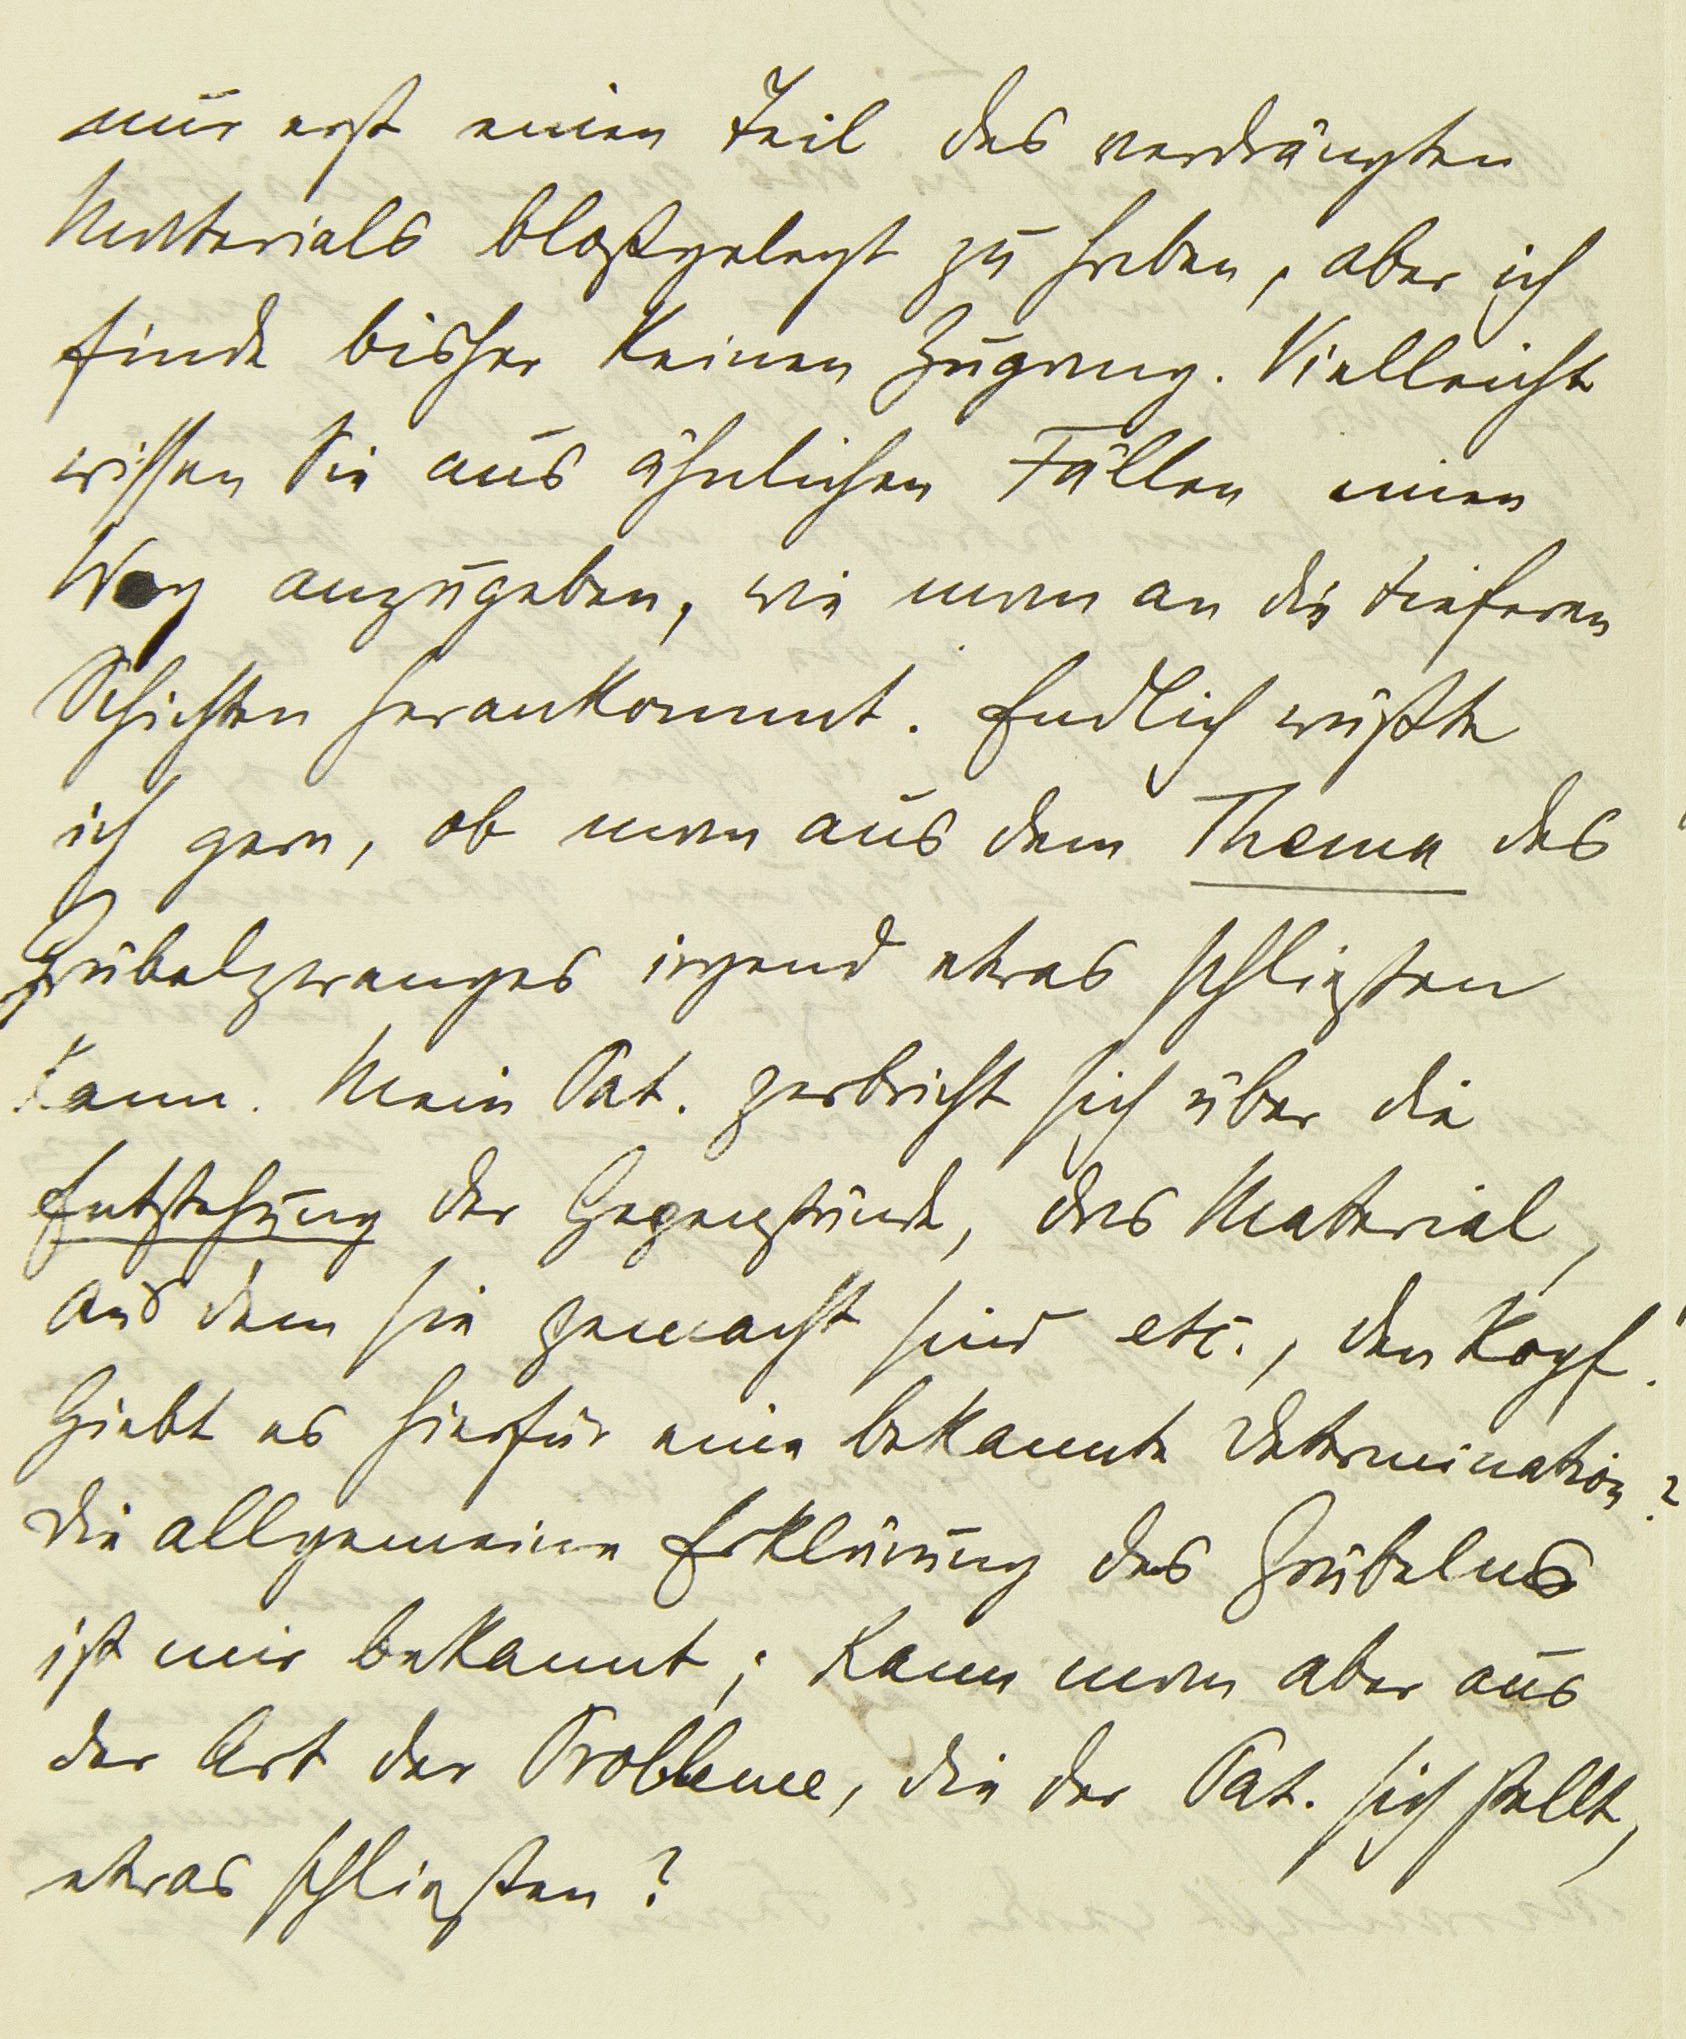 nur erst einen Teil des verdrängten
Materials bloßgelegt zu haben, aber ich
finde bisher keinen Zugang. Vielleicht
wissen Sie aus ähnlichen Fällen einen
Weg anzugeben, wie man an die tieferen
Schichten herankommt. Endlich wüßte
ich gern, ob man aus dem Thema des
Grübelzwanges irgend etwas schließen
kann. Mein Pat. zerbricht sich über die
Entstehung der Gegenstände, das Material,
aus dem sie gemacht sind etc., den Kopf.
Giebt es hierfür eine bekannte Determination?
Die allgemeine Erklärung des Grübelns
ist mir bekannt; kann man aber aus
der Art der Probleme, die der Pat. sich stellt,
etwas schließen?